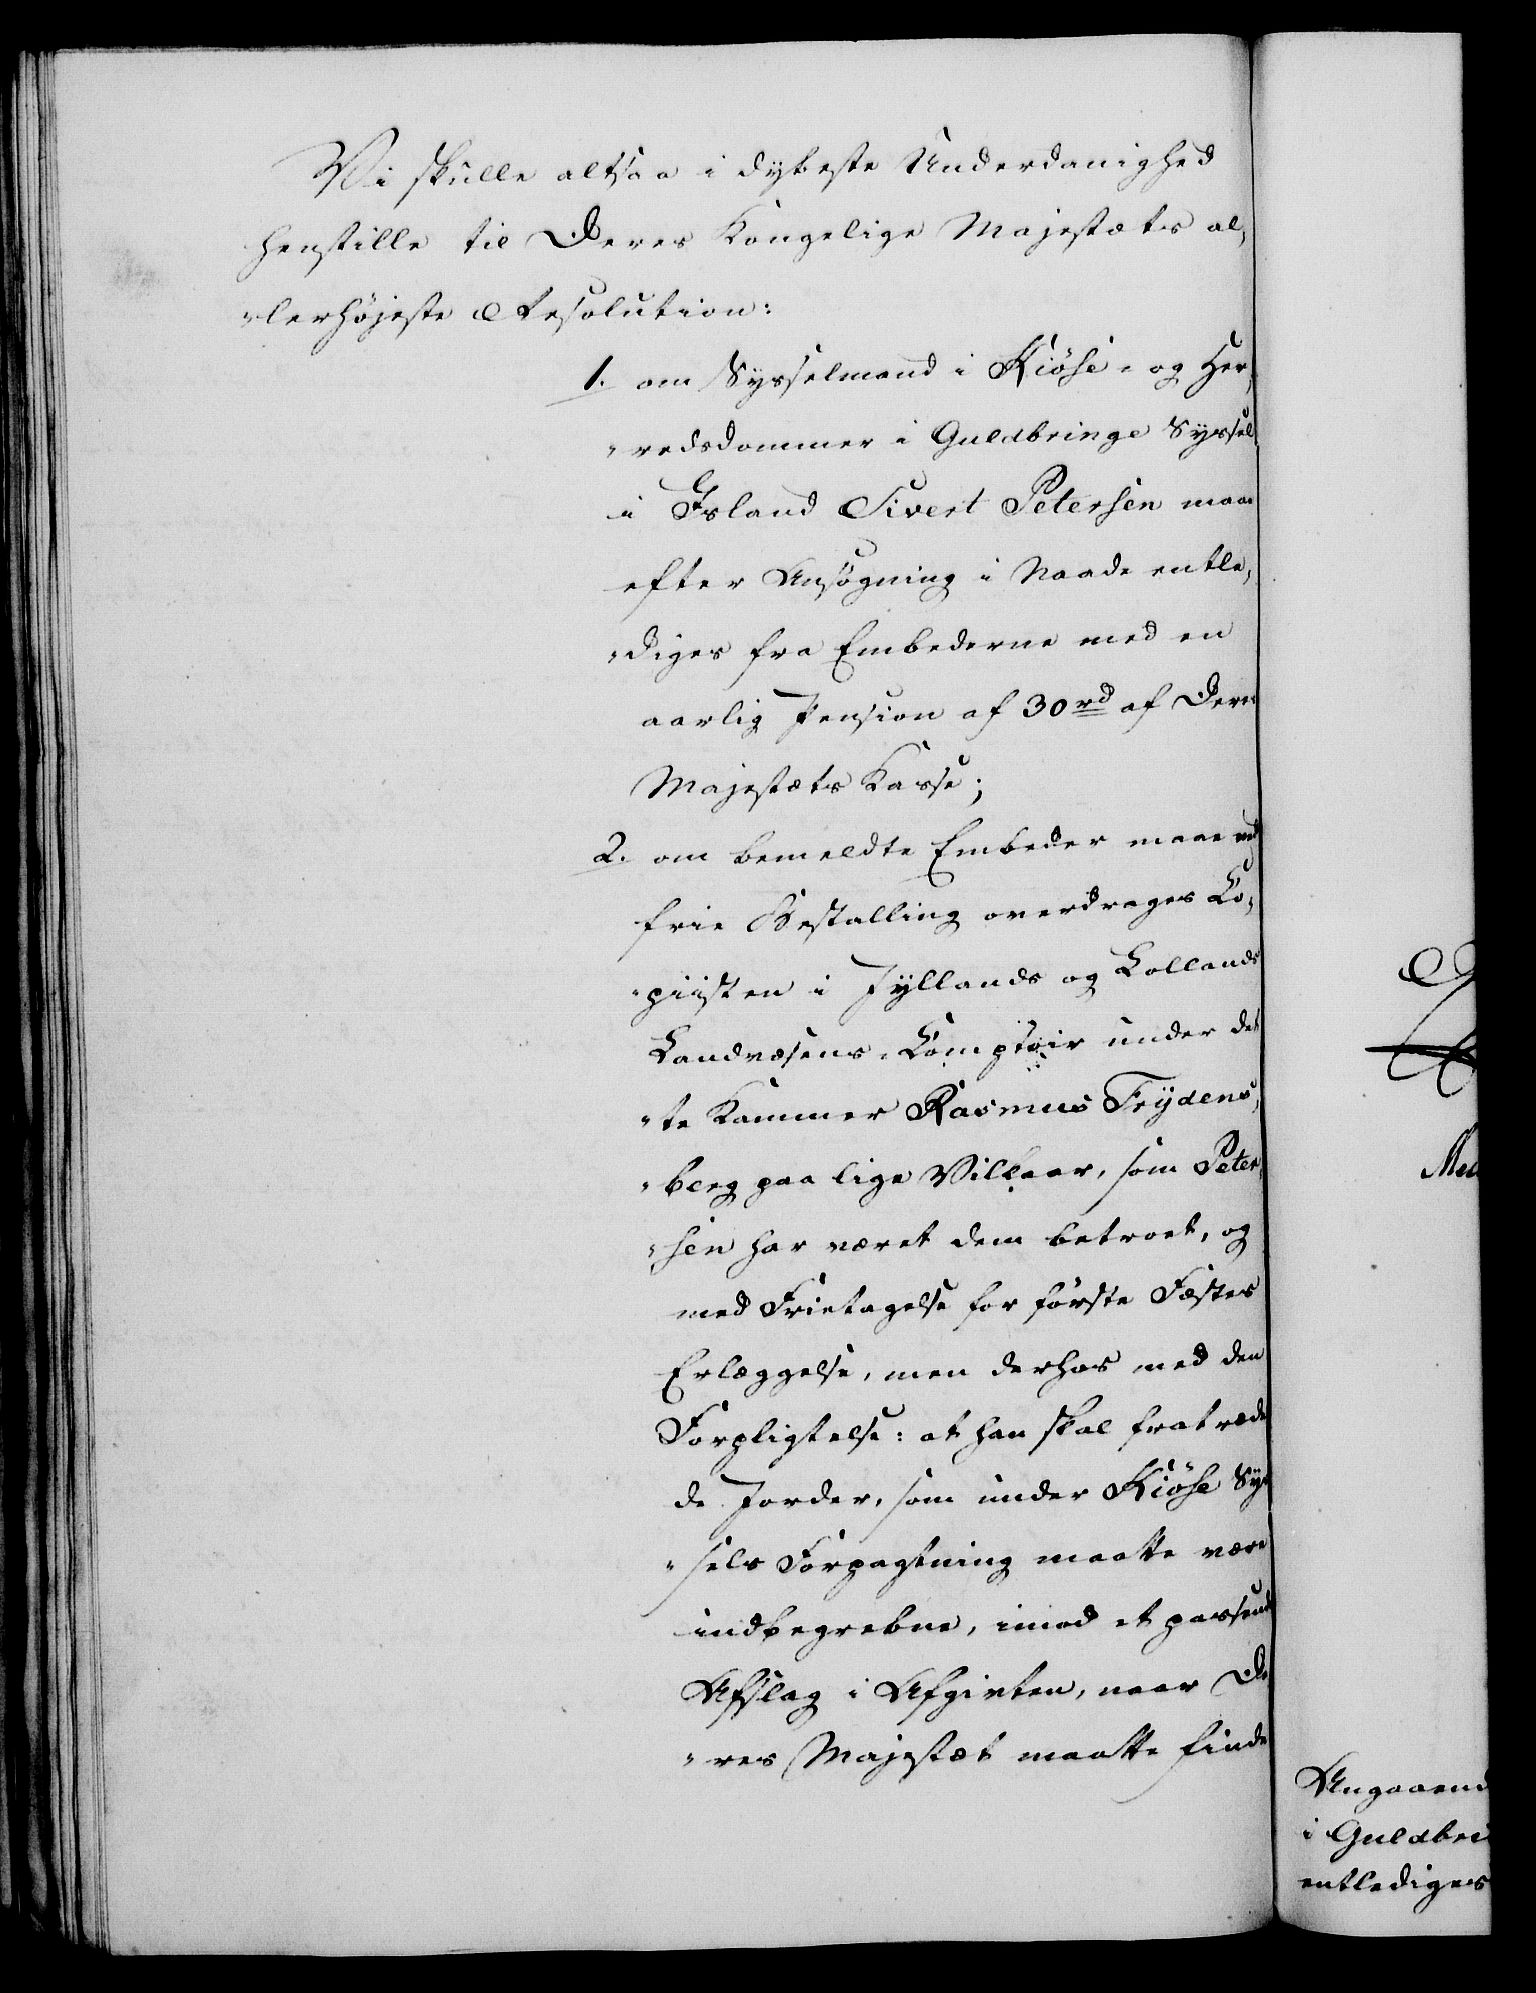 Vi skulle altsaa i dybeste Underdanighed
henstille til Deres Kongelige Majestæts al,
"lerhöjeste Resolution:
1. om Sysselmand i Kiöse- og Her,
"redsdommer i Guldbringe Syssel
i Island Sivert Petersen maa
efter Ansögning i Naade entle,
"diges fra Embederne med en
aarlig Pension af 30 rd af Deres
Majestæts Kasse;
2. om bemeldte Embeder maae ved
frie Bestalling overdrages Co,
"piisten i Jyllands og Lollands
Landvæsens-Comptoir under det
"te Kammer Rasmus Frydens,
"berg paa lige Vilkaar, som Peter,
"sen har været dem betroet, og
med Frietagelse for förste Fæstes
Erlæggelse, men derhos med den
Forpligtelse: at han skal fratræde
de Jorder, som under Kiöse Sys
"sels Forpagtning maatte være
indbegrebne, imod et passende
Afslag i Afgivten, naar De
"res Majestæt maatte finde
Angaaend
i Guldbri
entlediges